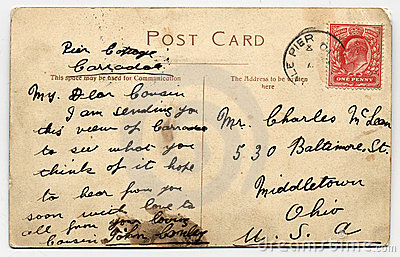 Pier Cottage
Carradale
POST CARD
This space may be used for Communication
The Address to be written
here
My Dear Cousin
I am sending you
this view of Carradale
to see what you
think of it hope
to hear from you
soon with love to
all from your loving
Cousin John
Mr. Charles McLean
530 Baltimore. St.
Middletown
Ohio
U. S. A
E PIER
ONE PENNY
dreamstime